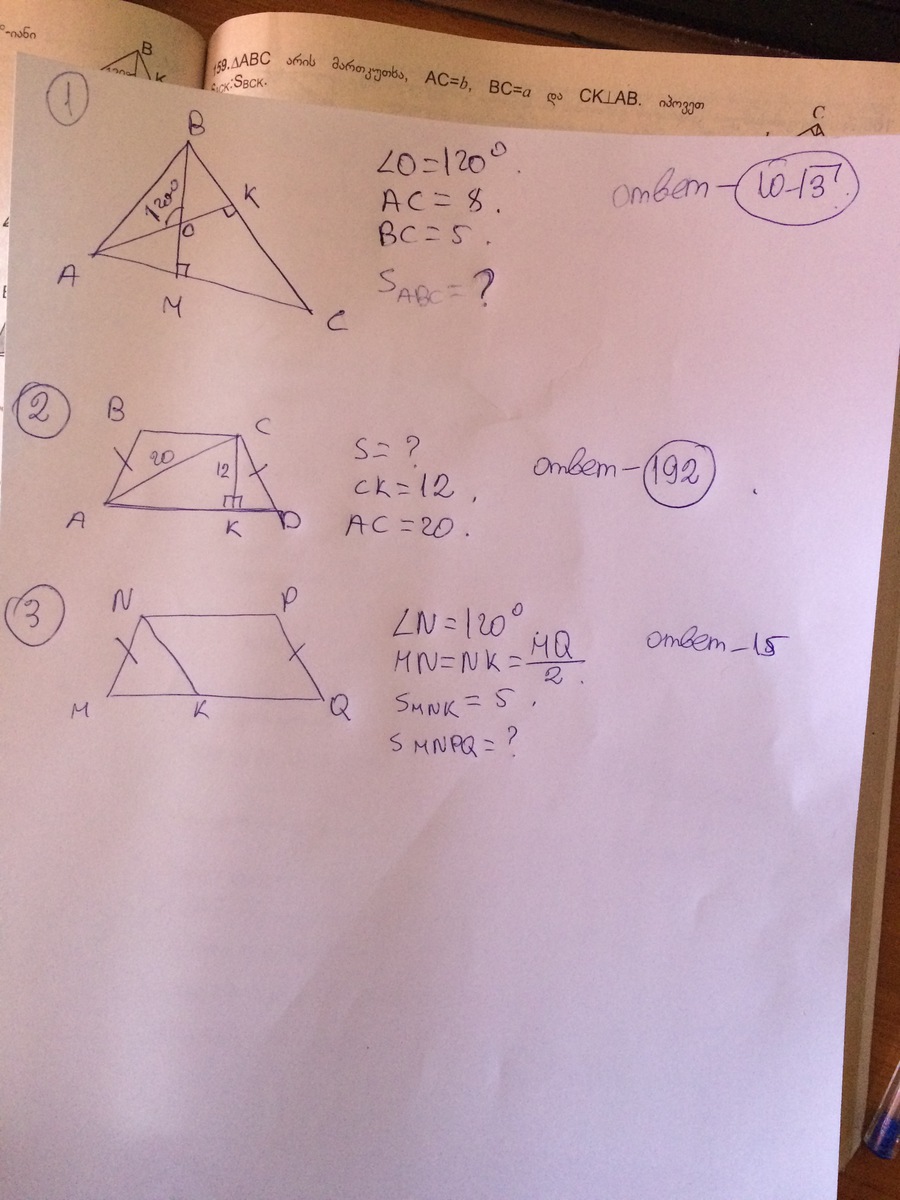 °-იანი
B
K
159.ΔABC არის მართკუთხა, AC=b, BC=a და CK⊥AB. იპოვეთ
SACK:SBCK.
C
1
B
120°
K
O
A
M
C
∠O=120°.
AC=8.
BC=5.
SABC=?
ответ-10√3
2
B
C
20
12
A
K
D
S=?
CK=12,
AC=20.
ответ-192
3
N
P
M
K
Q
∠N=120°
MN=NK=MQ/2.
SMNK=5,
SMNPQ=?
ответ-15